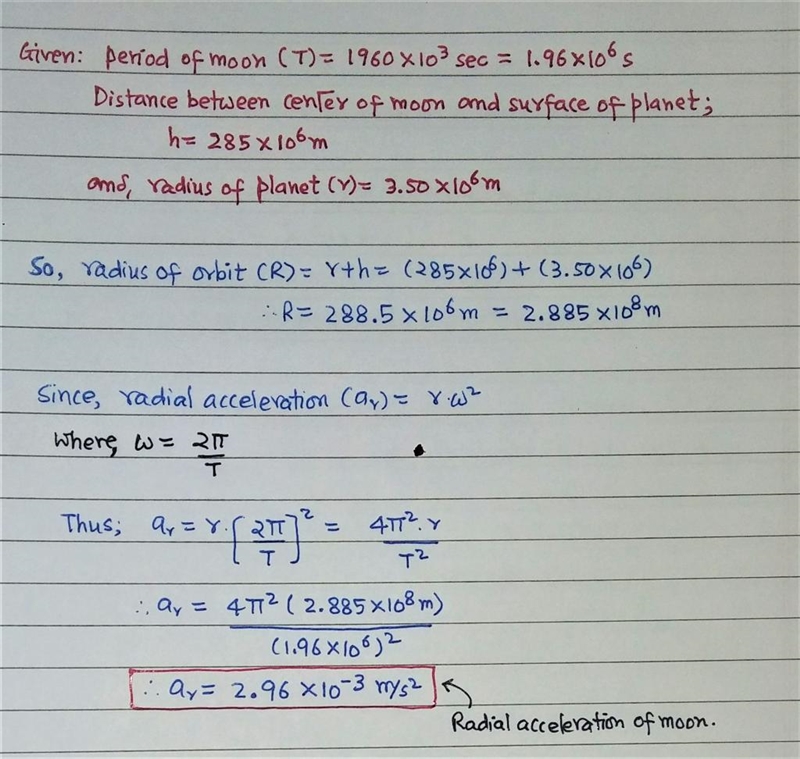 Given: Period of moon (T) = 1960×10³ sec = 1.96×10⁶ s
Distance between center of moon and surface of planet;
h = 285×10⁶ m
and, radius of planet (r) = 3.50×10⁶ m
So, radius of orbit (R) = r+h = (285×10⁶) + (3.50×10⁶)
∴ R = 288.5×10⁶ m = 2.885×10⁸ m
Since, radial acceleration (aᵣ) = r·ω²
Where, ω = 2π/T
Thus; aᵣ = r·[2π/T]² = 4π²·r/T²
∴ aᵣ = 4π²(2.885×10⁸ m)/(1.96×10⁶)²
∴ aᵣ = 2.96×10⁻³ m/s²
Radial acceleration of moon.